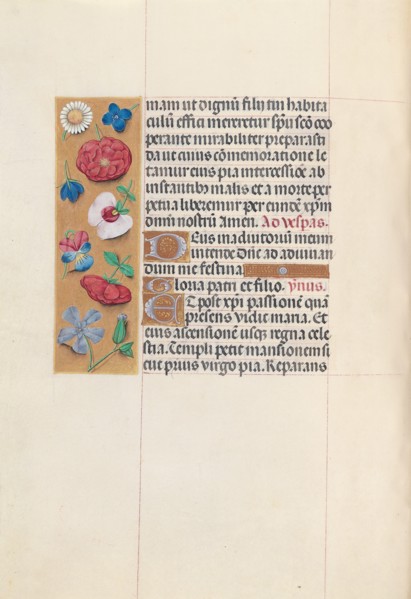 mam ut dignũ filii tui habita
culũ effici mereretur sp̃u sc̃o coo
perante mirabiliter preparasti
da ut cuius cõmemoratione le
tamur eius pia intercessiõe ab
instantibus malis et a morte per
petua liberemur per eundẽ xp̃m
dñm nostrũ Amen. Ad vesp̃as.
Deus in adiutoriũ meum
intende Dñe ad adiuuan
dum me festina
Gloria patri et filio. ymnus.
Et post xp̃i passionẽ quã
presens vidit maria. Et
eius ascensionẽ usq̃ regna cele
stia. Templi petit mansionem si
cut prius virgo pia. Reparans